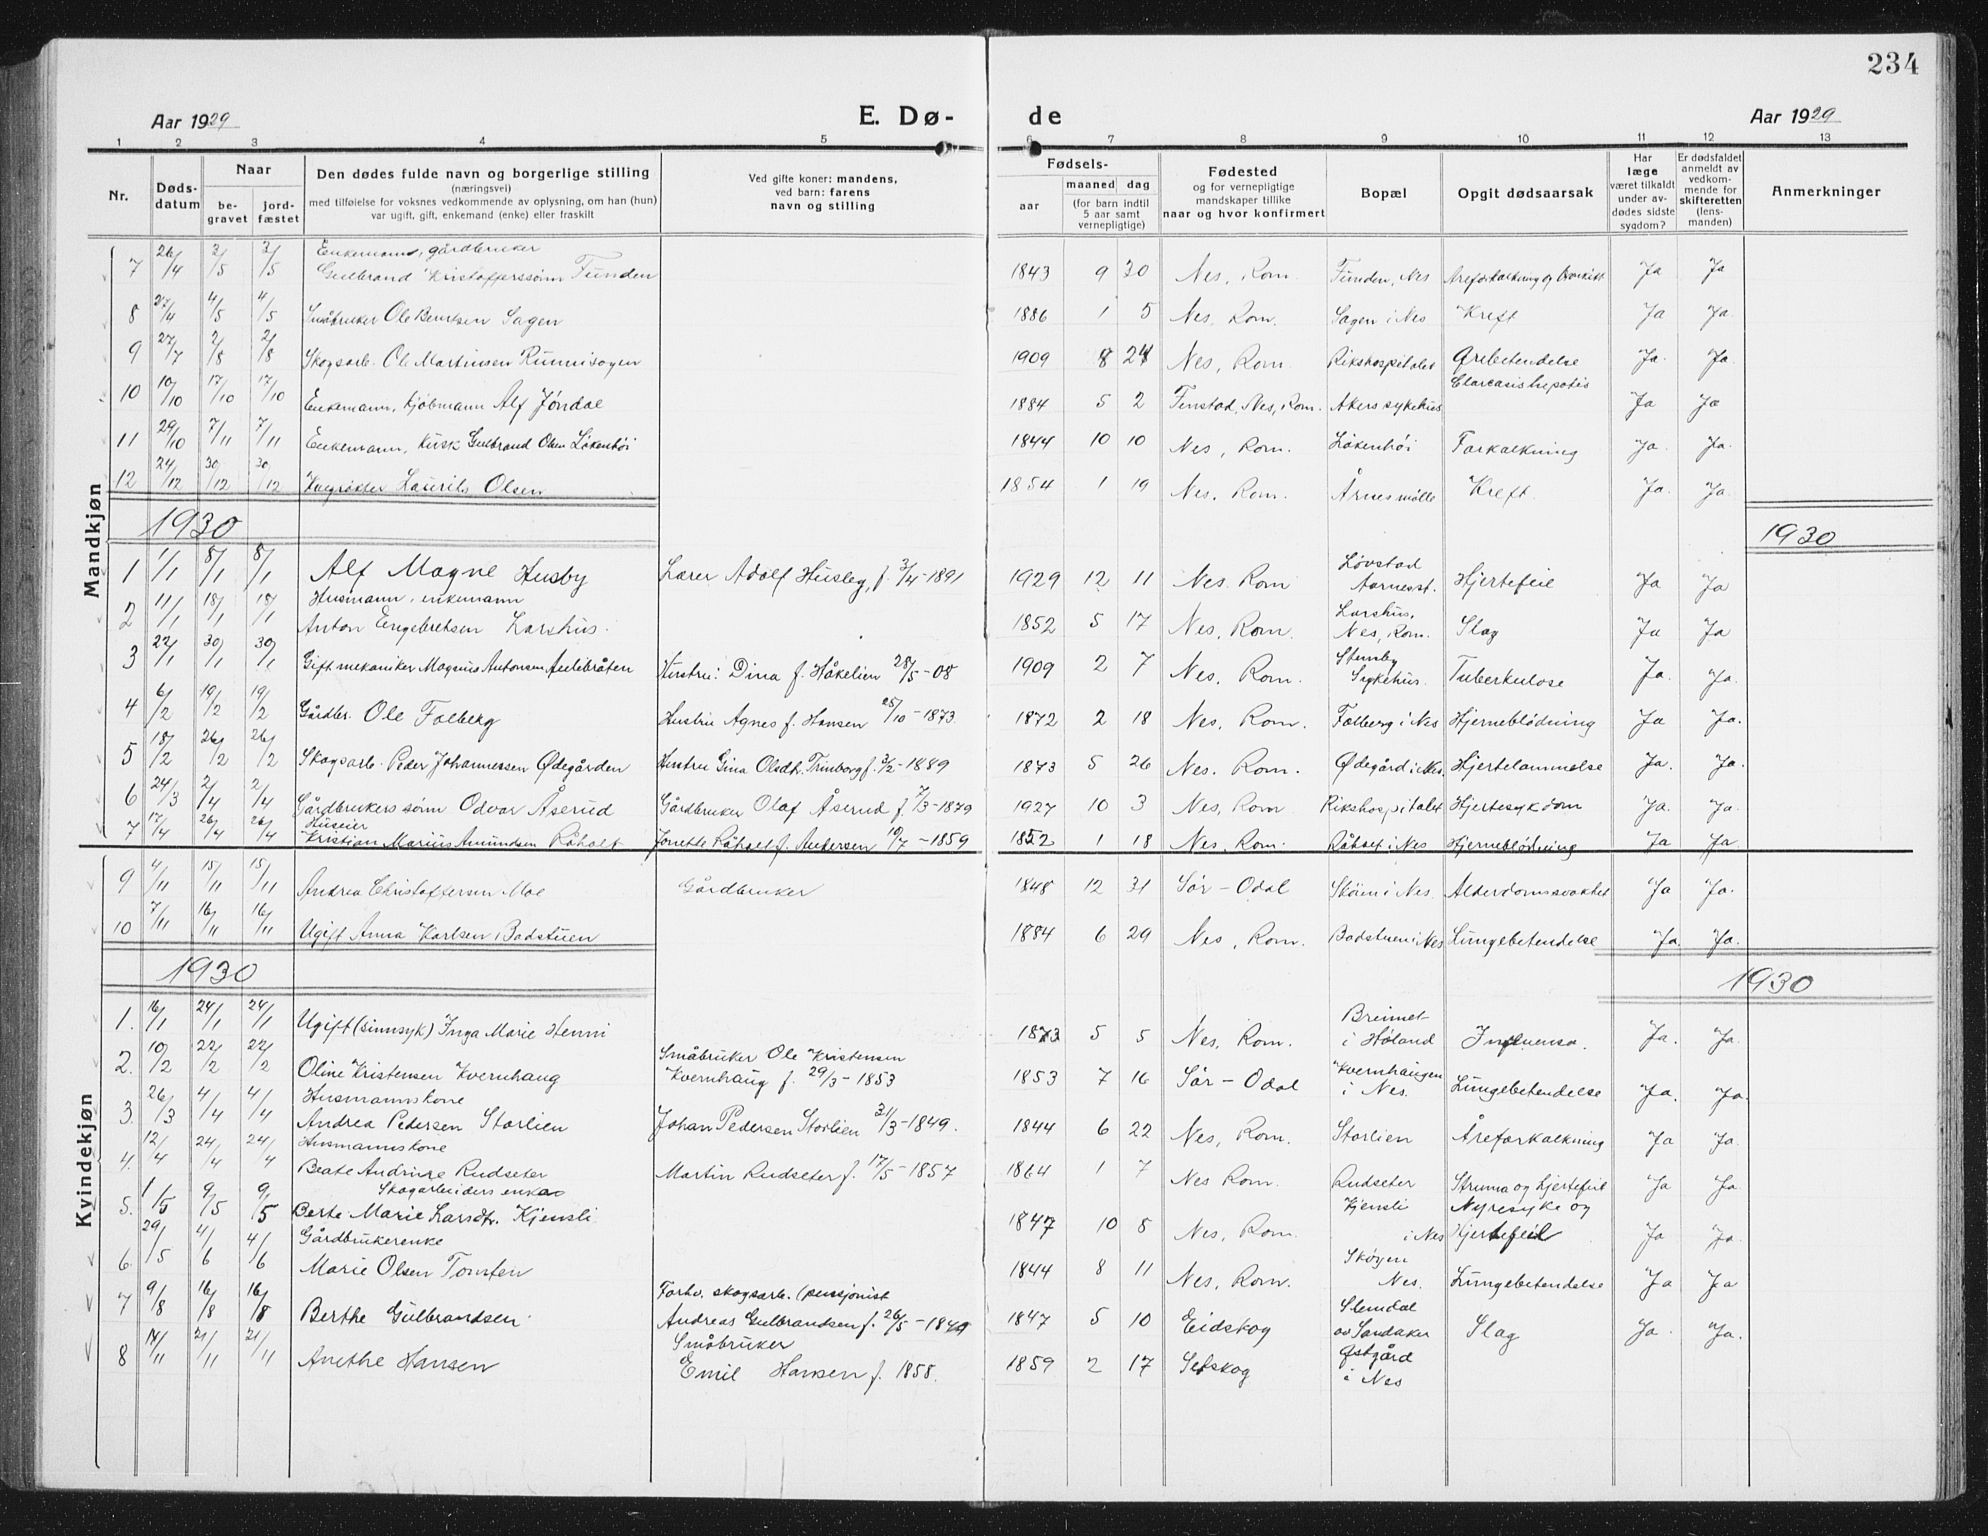 234
Aar 1929 E. Dø- de Aar 1929
1 2 3 4 5 6 7 8 9 10 11 12 13
Nr. Døds-datum Naar be-gravet jord-fæstet Den dødes fulde navn og borgerlige stilling (næringsvei) med tilføielse for voksnes vedkommende av oplysning, om han (hun) var ugift, gift, enkemand (enke) eller fraskilt Ved gifte koner: mandens, ved barn: farens navn og stilling Fødsels- aar maaned dag (for barn indtil 5 aar samt vernepligtige) Fødested og for vernepligtige mandskaper tillike naar og hvor konfirmert Bopæl Opgit dødsaarsak Har læge været tilkaldt under av-dødes sidste sygdom? Er dødsfaldet anmeldt av vedkom-mende for skifteretten (lens-manden) Anmerkninger
Mandkjøn
Enkemann, gårdbruker
7 26/4 3/5 3/5 Gulbrand Kristofferssønn Funden 1843 9 30 Nes, Rom. Funden, Nes Areforkalkning og Bronkitt Ja Ja
8 27/4 4/5 4/5 Småbruker Ole Berntsen Sagen 1886 1 5 Nes, Rom. Sagen i Nes Kreft Ja Ja
9 27/7 2/8 2/8 Skogsarb. Ole Martinsen Runnisagen 1909 8 24 Nes, Rom. Rikshospitalet Ørebetendelse Ja. Ja.
10 10/10 17/10 17/10 Enkemann, kjøbmann Alf Jøndal 1884 5 2 Finstad, Nes, Rom. Akers sykehus hepatis Ja Ja
11 29/10 7/11 7/11 Enkemann, kusk Gulbrand Olsen Løkenhøi 1844 10 10 Nes, Rom. Løkenhøi Forkalkning Ja. Ja.
12 24/12 30/12 30/12 Kvegrøkter Laurits Olsen 1854 1 19 Nes, Rom. Årnes mølle Kreft. Ja. Ja.
1930 1930
1 1/1 8/1 8/1 Alf Magne Husby Lærer Adolf Husby, f. 3/4-1891 1929 12 11 Nes. Rom Løvstad Aarnesst. Hjertefeil Ja Ja
Husmann, enkemann
2 11/1 18/1 18/1 Anton Engebretsen Larshus. 1852 5 17 Nes, Rom. Larshus, Nes, Rom. Slag Ja Ja
3 22/1 30/1 30/1 Gift mekaniker Magnus Antonsen Aulebråten Hustru: Dina f. Håkelien 28/5-08 1909 2 7 Nes, Rom. Stensby Sykehus. Tuberkulose Ja. Ja.
4 6/2 19/2 19/2 Gårdbr. Ole Folberg Hustru Agnes f. Hansen 25/10-1873 1872 2 18 Nes, Rom. Folberg i Nes Hjerneblødning Ja Ja.
5 18/2 26/2 26/2 Skogsarb. Peder Johannessen Ødegården Hustru Gina Olsdt. Trinborg f. 3/2-1889 1873 5 26 Nes. Rom. Ødegård i Nes. Hjertelammelse Ja. Ja.
6 24/3 2/4 2/4 Gårdbrukers sønn Odvar Åserud Gårdbruker Olaf Åserud f. 7/3-1879 1927 10 3 Nes, Rom Rikshospitalet Hjertesykdom Ja. Ja.
Huseier
7 17/4 26/4 26/4 Kristian Marius Amundsen Råholt Jonette Råholt f. Andersen 19/7-1859 1852 1 18 Nes, Rom. Råholt i Nes Hjerneblødning Ja Ja
Kvindekjøn
9 4/11 15/11 15/11 Andrea Christoffersen Moe Gårdbruker 1848 12 31 Sør-Odal Skøien i Nes. Alderdomssvakhet Ja Ja.
10 7/11 16/11 16/11 Ugift Anna Karlsen, Badstuen 1884 6 29 Nes, Rom. Badstuen i Nes Lungebetendelse Ja. Ja.
1930 1930
1. 16/1 24/1 24/1 Ugift (sinnsyk) Inga Marie Henni 1873 5 5 Nes, Rom. i Høland Influensa. Ja. Ja.
2. 10/2 22/2 22/2 Oline Kristensen Kvernhaug Småbruker Ole Kristensen Kvernhaug f. 29/3-1853 1853 7 16 Sør-Odal Kvernhaugen i Nes. Lungebetendelse Ja. Ja.
Husmannskone
3. 26/3 4/4 4/4 Andrea Pedersen Storlien Johan Pedersen Storlien 31/3-1849. 1844 6 22 Nes, Rom. Storlien Åreforkalkning Ja Ja.
Husmannskone
4. 12/4 24/4 24/4 Beate Andrine Rudseter Martin Rudseter f. 17/5-1857 1864 1 7 Nes Rom. Rudseter Struma og hjertefeil Ja Ja.
Skogarbeiders enke
5. 1/5 9/5 9/5 Berte Marie Larsdtr. Kjensli. 1847 10 8 Nes, Rom. Kjensli i Nes Nyresyke og Hjertefeil Ja Ja.
Gårdbrukerenke
6. 29/5 4/6 4/6 Marie Olsen Tomten 1844 8 11 Nes, Rom. Skøyen Nes. Lungebetendelse Ja Ja
7 9/8 16/8 16/8 Berthe Gulbrandsen. Forhv. skogsarb. (pensjonist Andreas Gulbrandsen f. 26/5-1849 1847 5 10 Eidskog Slemdal av Sandaker Slag Ja. Ja.
8 14/11 21/11 21/11 Anethe Hansen Småbruker Emil Hansen f. 1858. 1859 2 17 Setskog Østgård i Nes